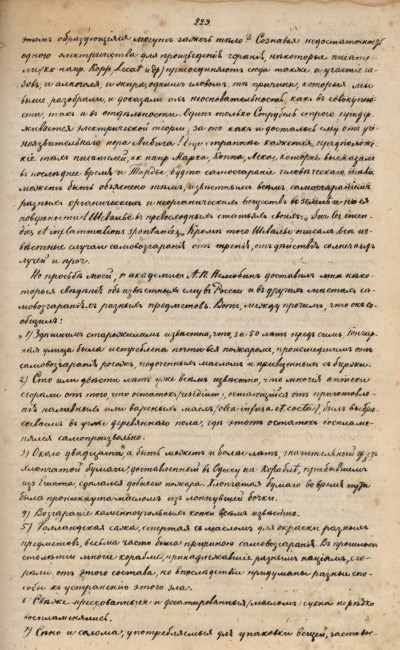 229
этомъ образующіяся могутъ зажечь тѣло? Сознавая недостаточность
одного электричества для произведенія горѣнія, нѣкоторые писате-
ли, какъ напр. Kopp, Lecat и др) присоединяютъ сюда также и участіе га-
зовъ, и алкоголя, и жира, однимъ словомъ, тѣ причины, которыя мы
выше разобрали, и доказали ихъ неосновательность, какъ въ совокупно-
сти, такъ и въ отдѣльности. Одинъ только Струбель строго придер-
живается электрической теоріи; за то какъ и досталось ему отъ уче-
наго Либиха! Еще страннѣе кажется предположе-
ніе тѣхъ писателей, какъ напр Марка, Коппа, которые высказали
въ послѣднее время и Тардьё, будто самосгораніе человѣческаго тѣла
можетъ быть объяснено тѣмъ, извѣстнымъ всѣмъ, самосгораніемъ
разныхъ органическихъ и неорганическихъ веществъ въ землѣ и на ея
поверхности! Шевалье въ превосходныхъ статьяхъ своихъ: „Sur les incen-
dies et inflammations spontanées„ Кромѣ того Шевалье писалъ объ из-
вѣстныхъ случаяхъ самовозгаранія отъ тренія, отъ дѣйствія солнечныхъ
лучей и проч.
По просьбѣ моей, г. академикъ А. П. Нелюбинъ доставилъ мнѣ нѣко-
торыя свѣденія объ извѣстныхъ ему въ Россіи и въ другихъ мѣстахъ са-
мовозгараніяхъ разныхъ предметовъ. Вотъ, между прочимъ, что онъ со-
общилъ:
„1) Здѣшнимъ старожиламъ извѣстно, что, за 50 лѣтъ предъ симъ, Гончар-
ная улица была истреблена почти вся пожаромъ, происшедшимъ отъ
самовозгаранія рогожъ, подмоченныхъ масломъ и привезенныхъ съ биржи.
2) Сто или двѣсти лѣтъ уже всѣмъ извѣстно, что многія аптеки
сгорѣли отъ того, что остатокъ (residuum), остающійся отъ приготовле-
нія наливныхъ или вареныхъ маслъ (olea infusa et cocta), былъ выбро-
сываемъ въ углѣ деревяннаго пола, гдѣ этотъ остатокъ воспламе-
нялся самопроизвольно.
3) Около двадцати, а быть можетъ и болѣе лѣтъ, значительный грузъ
хлопчатой бумаги, доставленной въ Одессу на кораблѣ, прибывшемъ
изъ Египта, сдѣлался добычею пожара. Хлопчатая бумага во время пути
была проникнута масломъ изъ лопнувшей бочки.
4) Возгараніе каменноугольныхъ копей всѣмъ извѣстно.
5) Голландская сажа, стертая съ масломъ для окраски разныхъ
предметовъ, весьма часто была причиною самовозгаранія. Въ прошломъ
столѣтіи многіе корабли, принадлежавшіе разнымъ націямъ, сго-
рѣли отъ этого состава, но впослѣдствіи придуманы разные спо-
собы къ устраненію этого зла.
6) Свѣже-прессованныя и декатированныя (масломъ) сукна нерѣдко
воспламенялись.
7) Сѣно и солома, употребляемыя для упаковки вещей, часто вос-